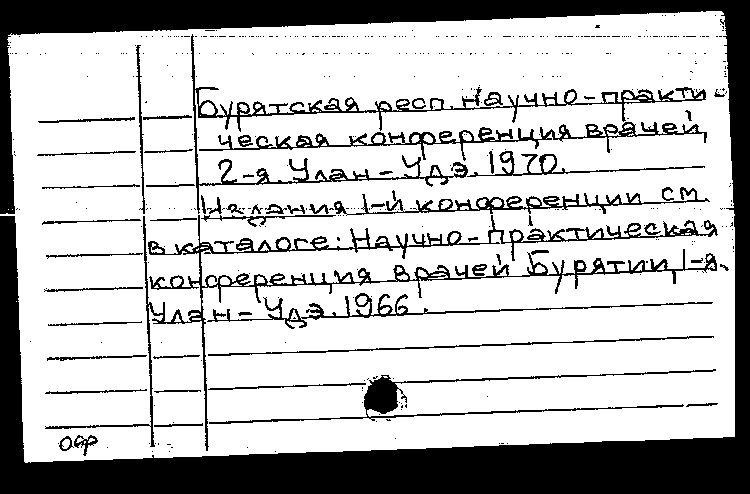 Бурятская респ. научно-практи-
ческая конференция врачей,
2-я. Улан-Удэ. 1970.
Издания 1-й конференции см.
в каталоге: Научно-практическая
конференция врачей Бурятии, 1-я.
Улан-Удэ. 1966.